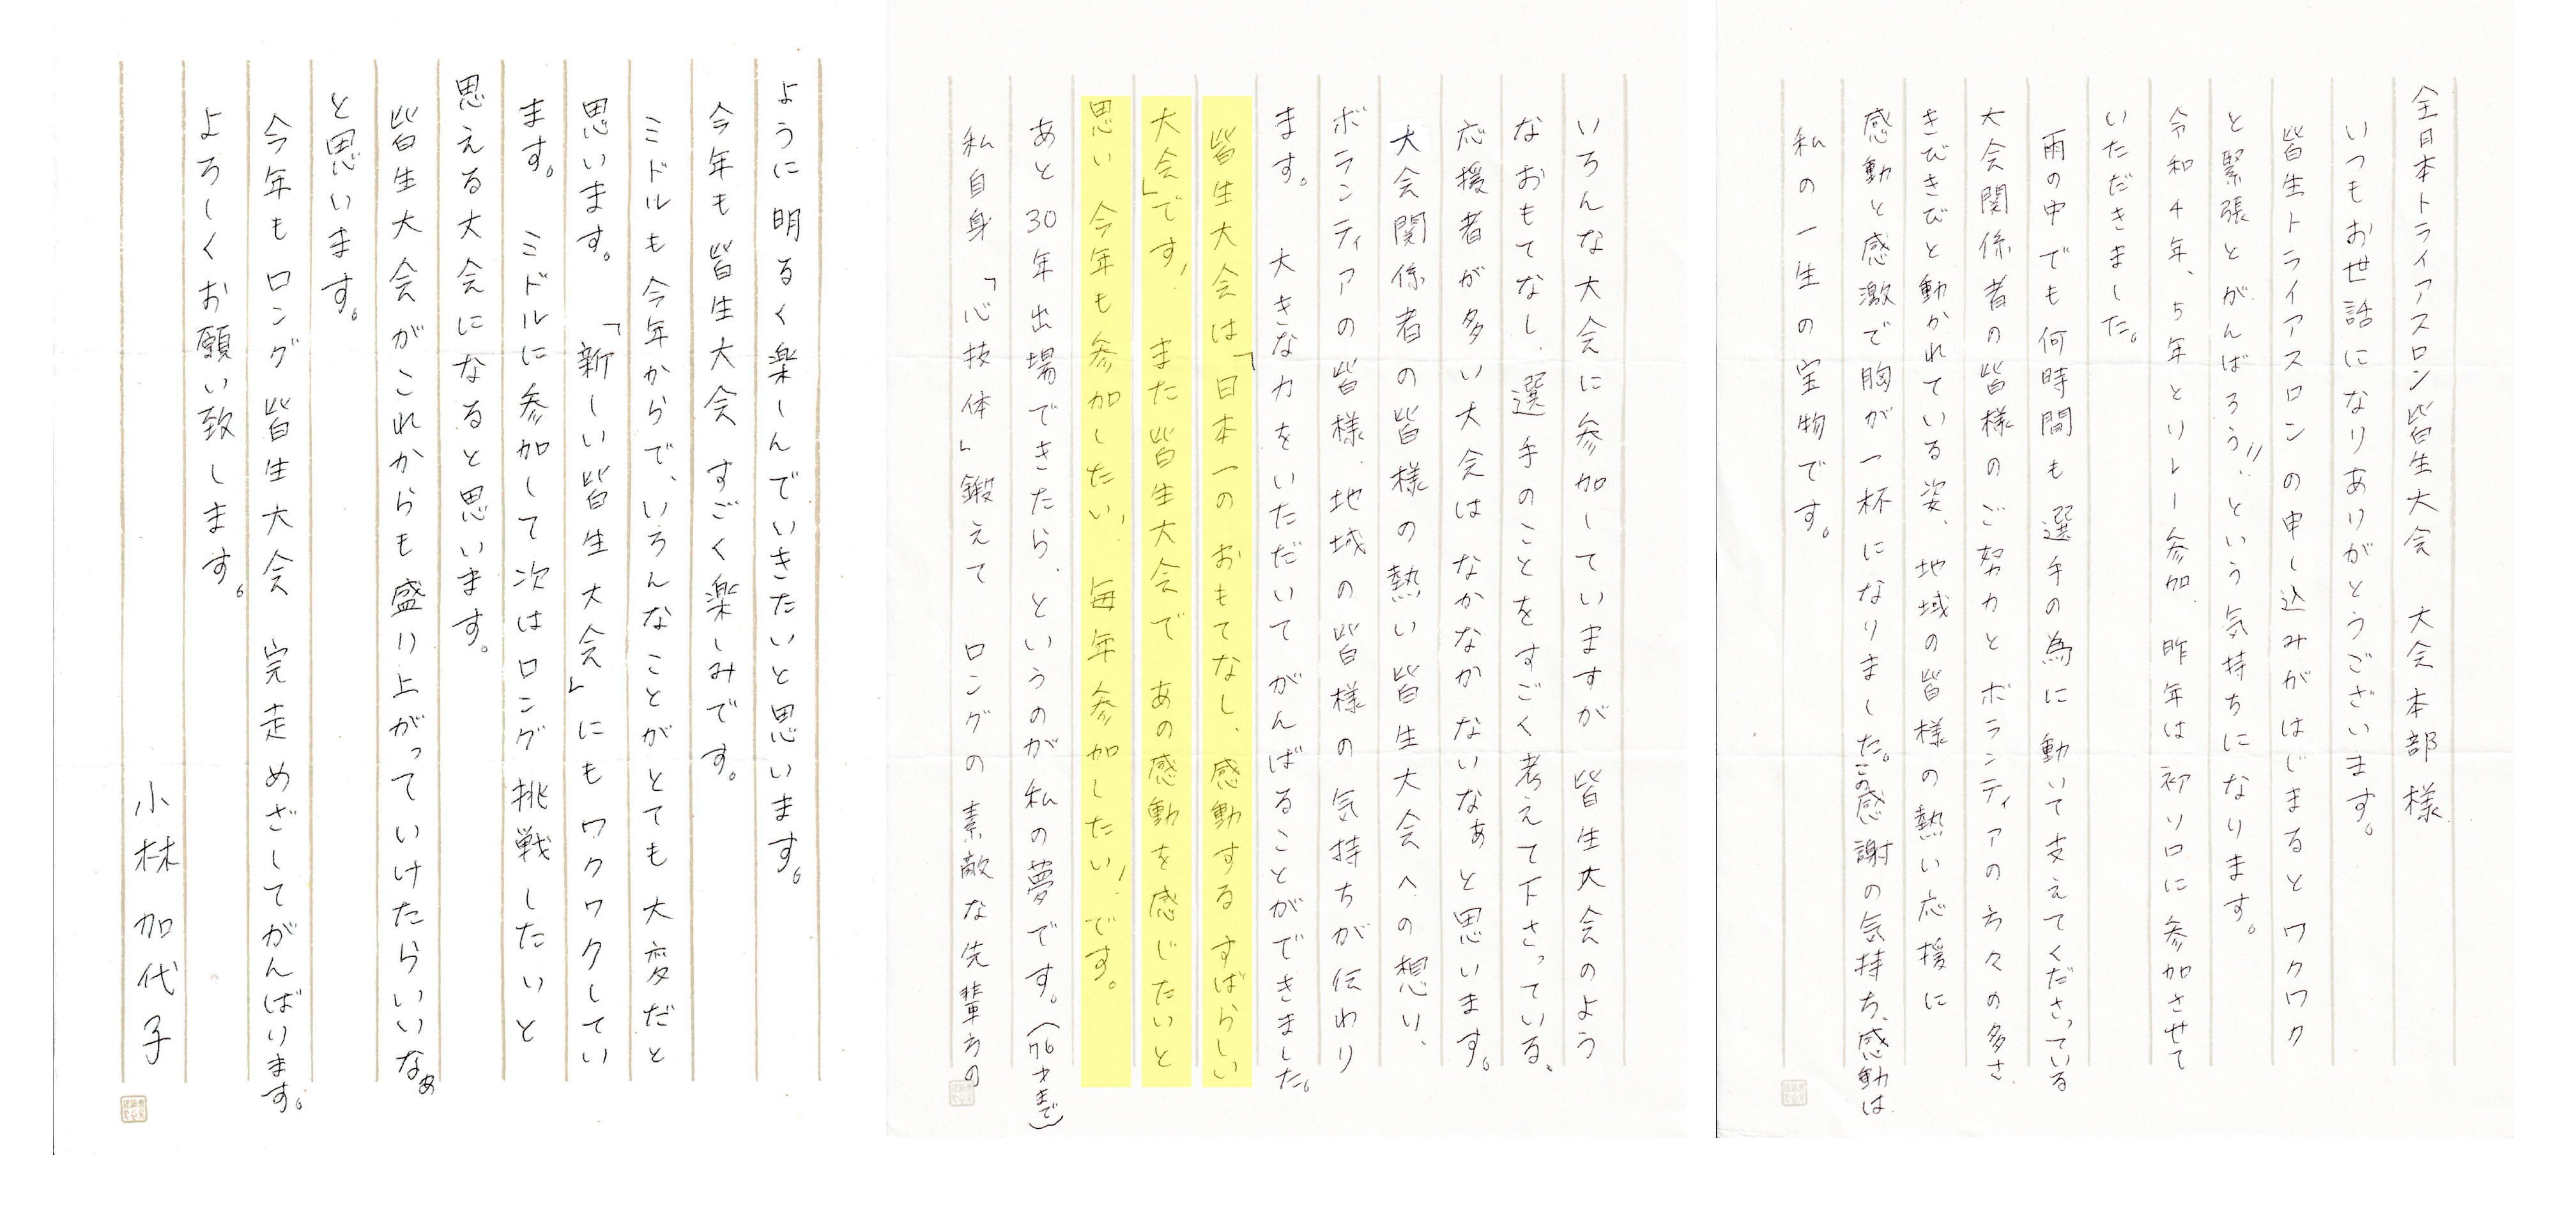 全日本トライアスロン皆生大会　大会本部様
いつもお世話になりありがとうございます。
皆生トライアスロンの申し込みがはじまるとワクワク
と緊張とがんばろう!!という気持ちになります。
令和4年、5年とリレー参加、昨年は初ソロに参加させて
いただきました。
雨の中でも何時間も選手の為に動いて支えてくださっている
大会関係者の皆様のご努力とボランティアの方々の多さ、
きびきびと動かれている姿、地域の皆様の熱い応援に
感動と感激で胸が一杯になりました。この感謝の気持ち、感動は
私の一生の宝物です。
いろんな大会に参加していますが　皆生大会のよう
なおもてなし、選手のことをすごく考えて下さっている、
応援者が多い大会は　なかなかないなぁと思います。
大会関係者の皆様の熱い皆生大会への想い、
ボランティアの皆様、地域の皆様の気持ちが伝わり
ます。　大きな力をいただいてがんばることができました。
皆生大会は「日本一のおもてなし、感動するすばらしい
大会」です！　また皆生大会で　あの感動を感じたいと
思い　今年も参加したい！　毎年参加したい！です。
あと30年出場できたら、というのが私の夢です。（76才まで）
私自身「心技体」鍛えて　ロングの素敵な先輩方の
ように明るく楽しんでいきたいと思います。
今年も皆生大会　すごく楽しみです。
ミドルも今年からで、いろんなことがとても大変だと
思います。「新しい皆生大会」にもワクワクしてい
ます。　ミドルに参加して次はロング挑戦したいと
思える大会になると思います。
皆生大会がこれからも盛り上がっていけたらいいなぁ
と思います。
今年もロング皆生大会　完走めざしてがんばります。
よろしくお願い致します。
小林加代子